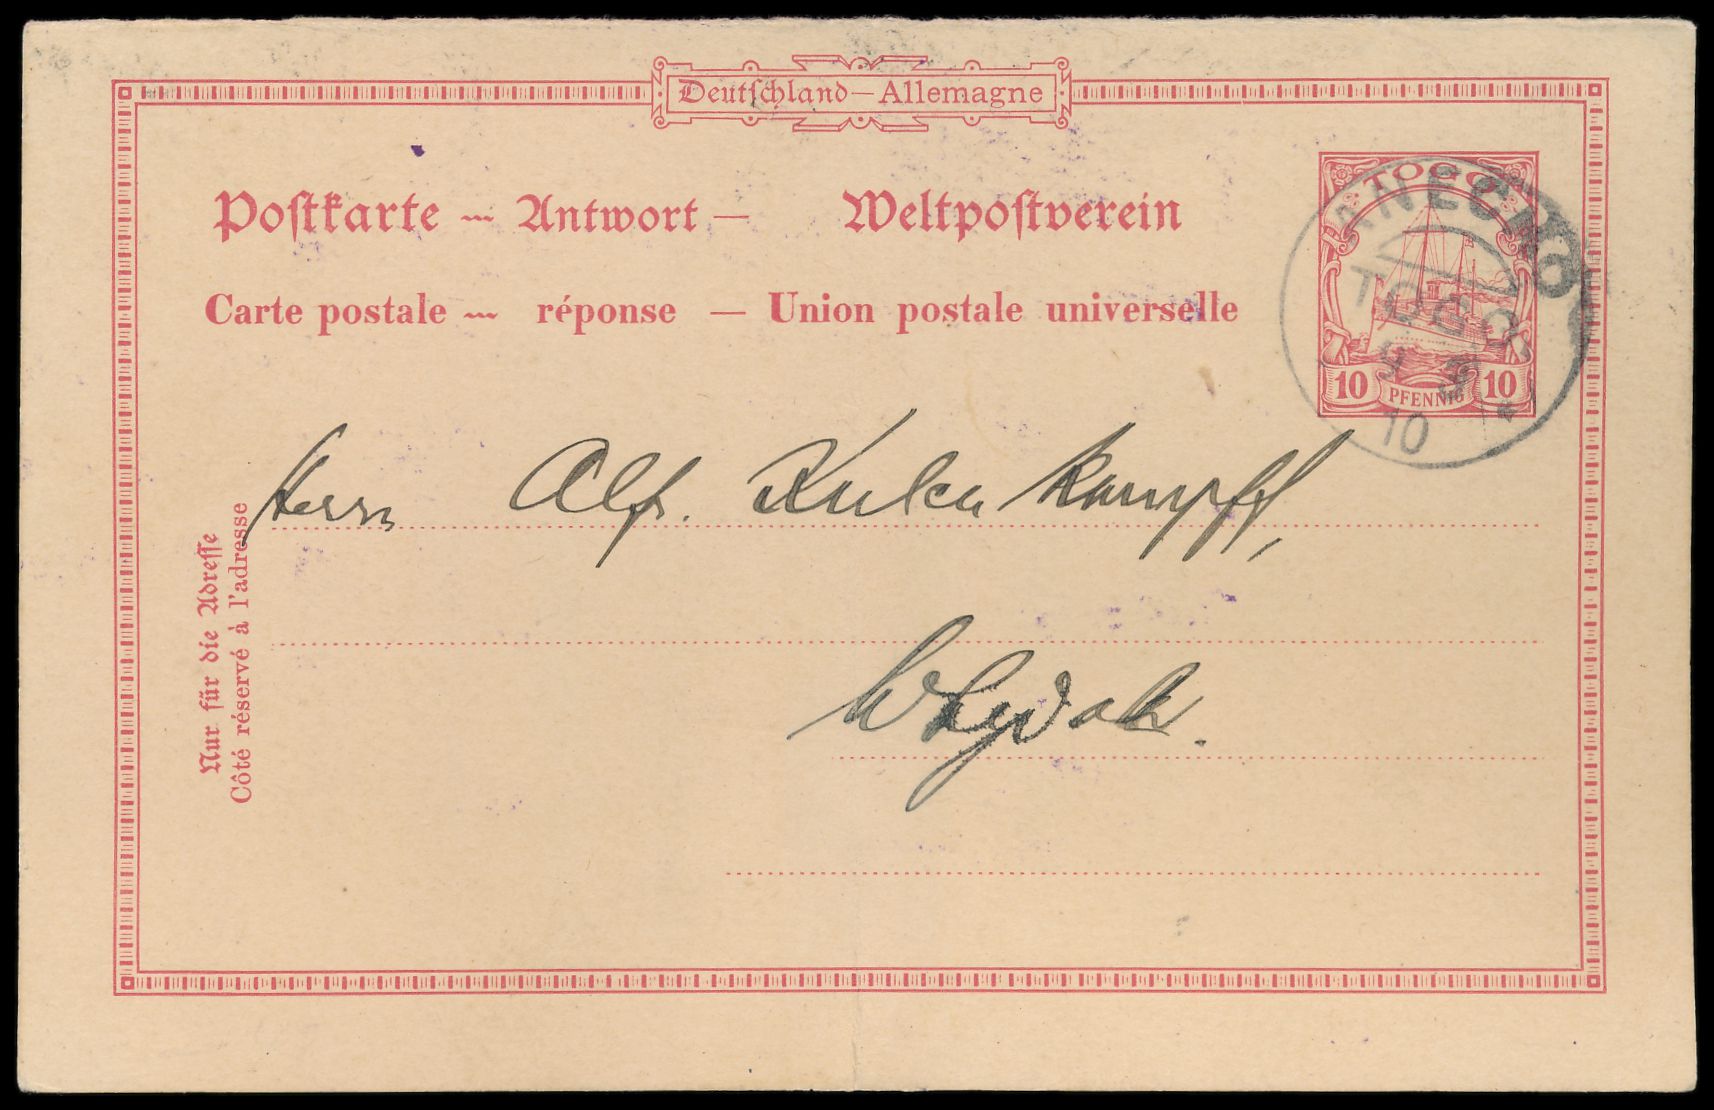 Deutſchland—Allemagne
Poſtkarte ~ Antwort — Weltpoſtverein
Carte postale ~ réponse — Union postale universelle
TOGO
10 PFENNIG 10
ANECHO
TOGO
9 3
10
Herrn Alfr. Kulenkampff,
Whydah.
Nur für die Adreſſe
Côté réservé à l'adresse